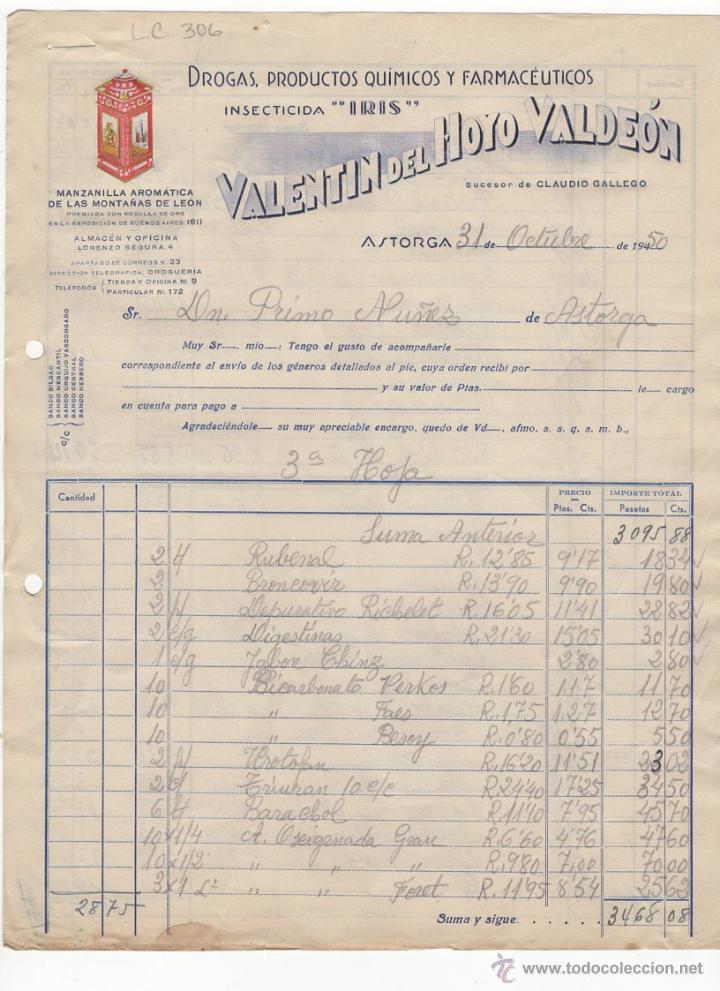 LC 306
DROGAS, PRODUCTOS QUÍMICOS Y FARMACÉUTICOS
INSECTICIDA ""IRIS"
VALENTIN DEL HOYO VALDEÓN
Sucesor de CLAUDIO GALLEGO
MANZANILLA AROMÁTICA
DE LAS MONTAÑAS DE LEÓN
PREMIADA CON MEDALLA DE ORO
EN LA EXPOSICIÓN DE BUENOS AIRES 1911
ALMACÉN Y OFICINA
LORENZO SEGURA, 4
APARTADO DE CORREOS N. 23
DIRECCIÓN TELEGRÁFICA: DROGUERIA
TELÉFONOS { TIENDA Y OFICINA Nº 9
PARTICULAR Nº 172
ASTORGA 31 de Octubre de 19450
Sr. Dn. Primo Nuñez de Astorga
Muy Sr. mío: Tengo el gusto de acompañarle
correspondiente al envío de los géneros detallados al pie, cuya orden recibí por
y su valor de Ptas. le cargo
en cuenta para pago a
Agradeciéndole su muy apreciable encargo, quedo de Vd , afmo. s. s. q. s. m. b.,
c/c
BANCO BILBAO
BANCO MERCANTIL
BANCO URQUIJO VASCONGADO
BANCO CENTRAL
BANCO HERRERO
3ª Hoja
Cantidad PRECIO IMPORTE TOTAL
Ptas. Cts. Pesetas Cts.
Suma Anterior 3095 88
2 Rubenal R. 12'85 9'17 18 34
2 Broncovir R. 13'90 9'90 19 80
2 Depurativo Richelet R. 16'05 11'41 22 82
2 c/g Digestinas R. 21'30 15'05 30 10
1 c/g Jabon Chinz 2'80 2 80
10 Bicarbonato Perkos R. 1'60 1.17 11 70
10 " Faes R. 1,75 1.27 12 70
10 " Besoy R. 0'80 0'55 5 50
2 Urotofan R. 16'20 11'51 23 02
2 10 c/c R 24'40 17'25 34 50
6 Barachol R. 11'10 7'95 45 70
10 x 1/4 A. Oxigenada Grau R. 6'60 4'76 47 60
10 x 1/2 " " " R. 9'80 7,00 70 00
3 x 1 L " " Foret R. 11'95 8'54 25 63
28 75
Suma y sigue. . . . . . 3468 08
todocoleccion
www.todocoleccion.net